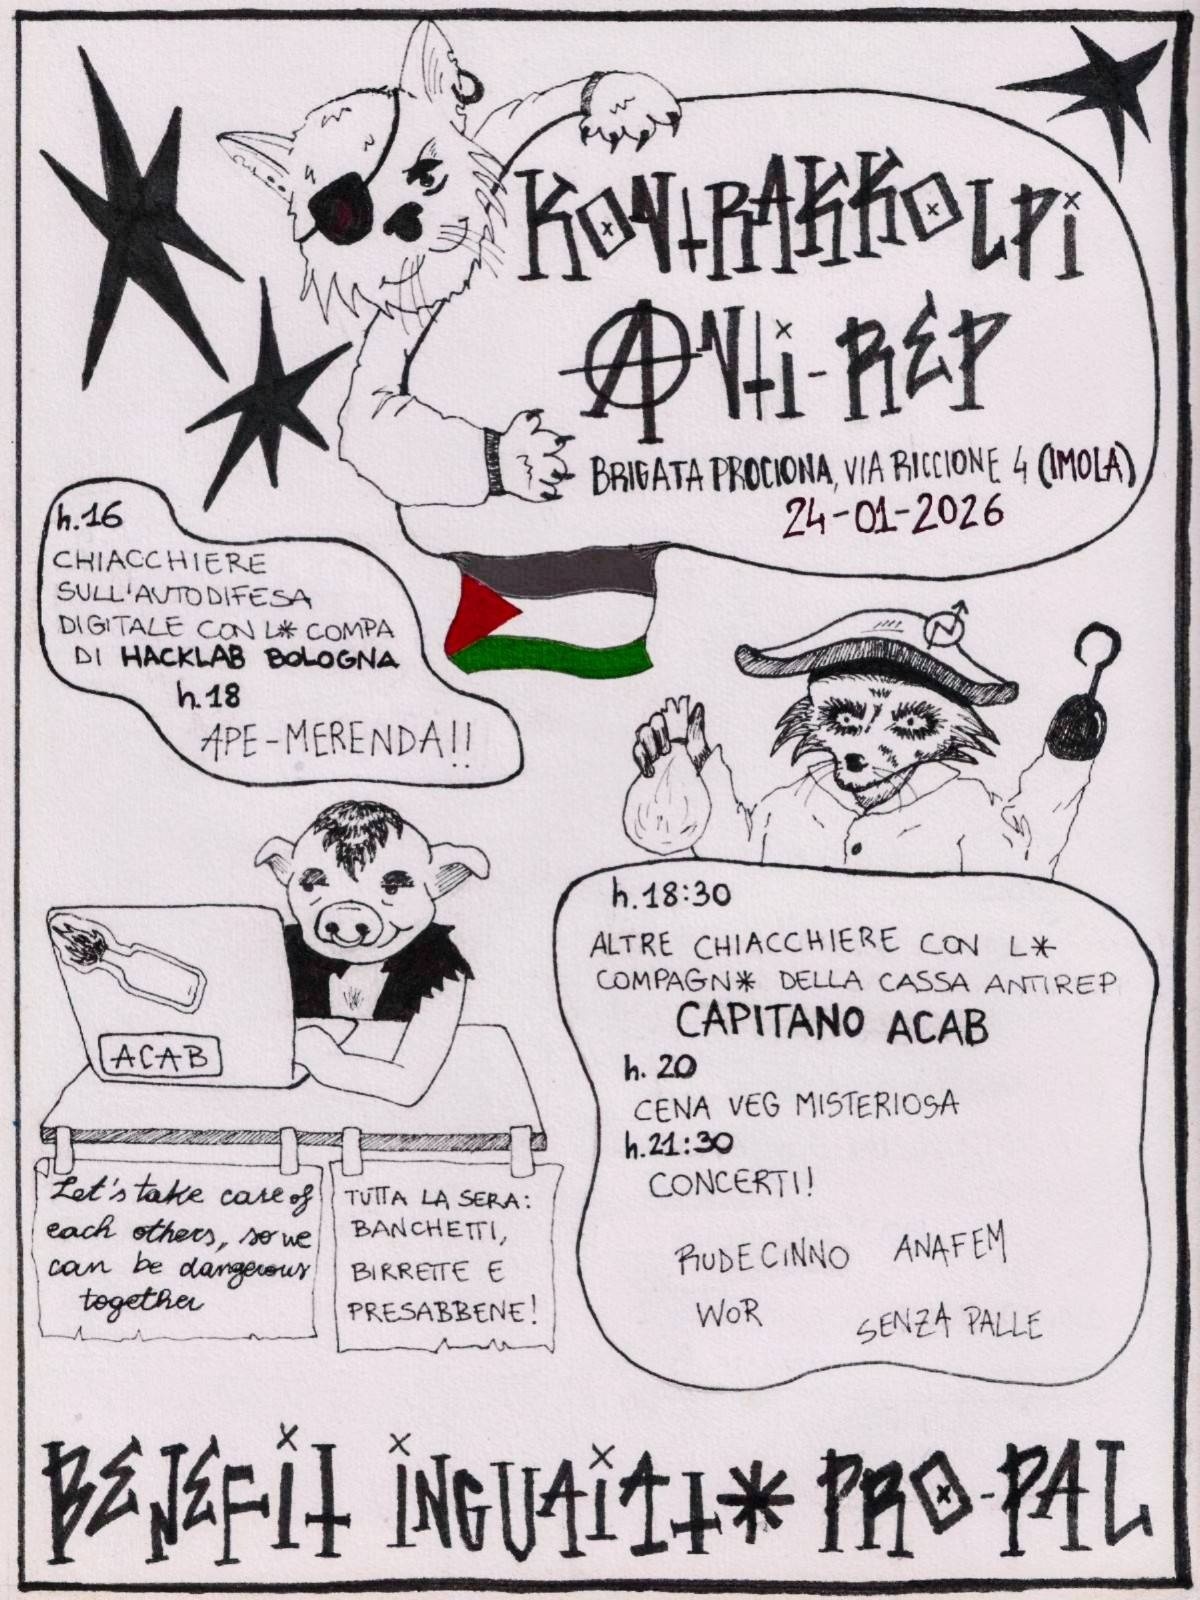 KONTRAKKOLPI
ANTI-REP
BRIGATA PROCIONA, VIA RICCIONE 4 (IMOLA)
24-01-2026
h.16
CHIACCHIERE
SULL'AUTODIFESA
DIGITALE CON L* COMPA
DI HACKLAB BOLOGNA
h.18
APE-MERENDA!!
ACAB
h.18:30
ALTRE CHIACCHIERE CON L*
COMPAGN* DELLA CASSA ANTIREP
CAPITANO ACAB
h. 20
CENA VEG MISTERIOSA
h.21:30
CONCERTI!
RUDECINNO ANAFEM
WOR SENZA PALLE
Let's take care of
each others, so we
can be dangerous
together
TUTTA LA SERA:
BANCHETTI,
BIRRETTE E
PRESABBENE!
BENEFIT INGUAIATT* PRO-PAL